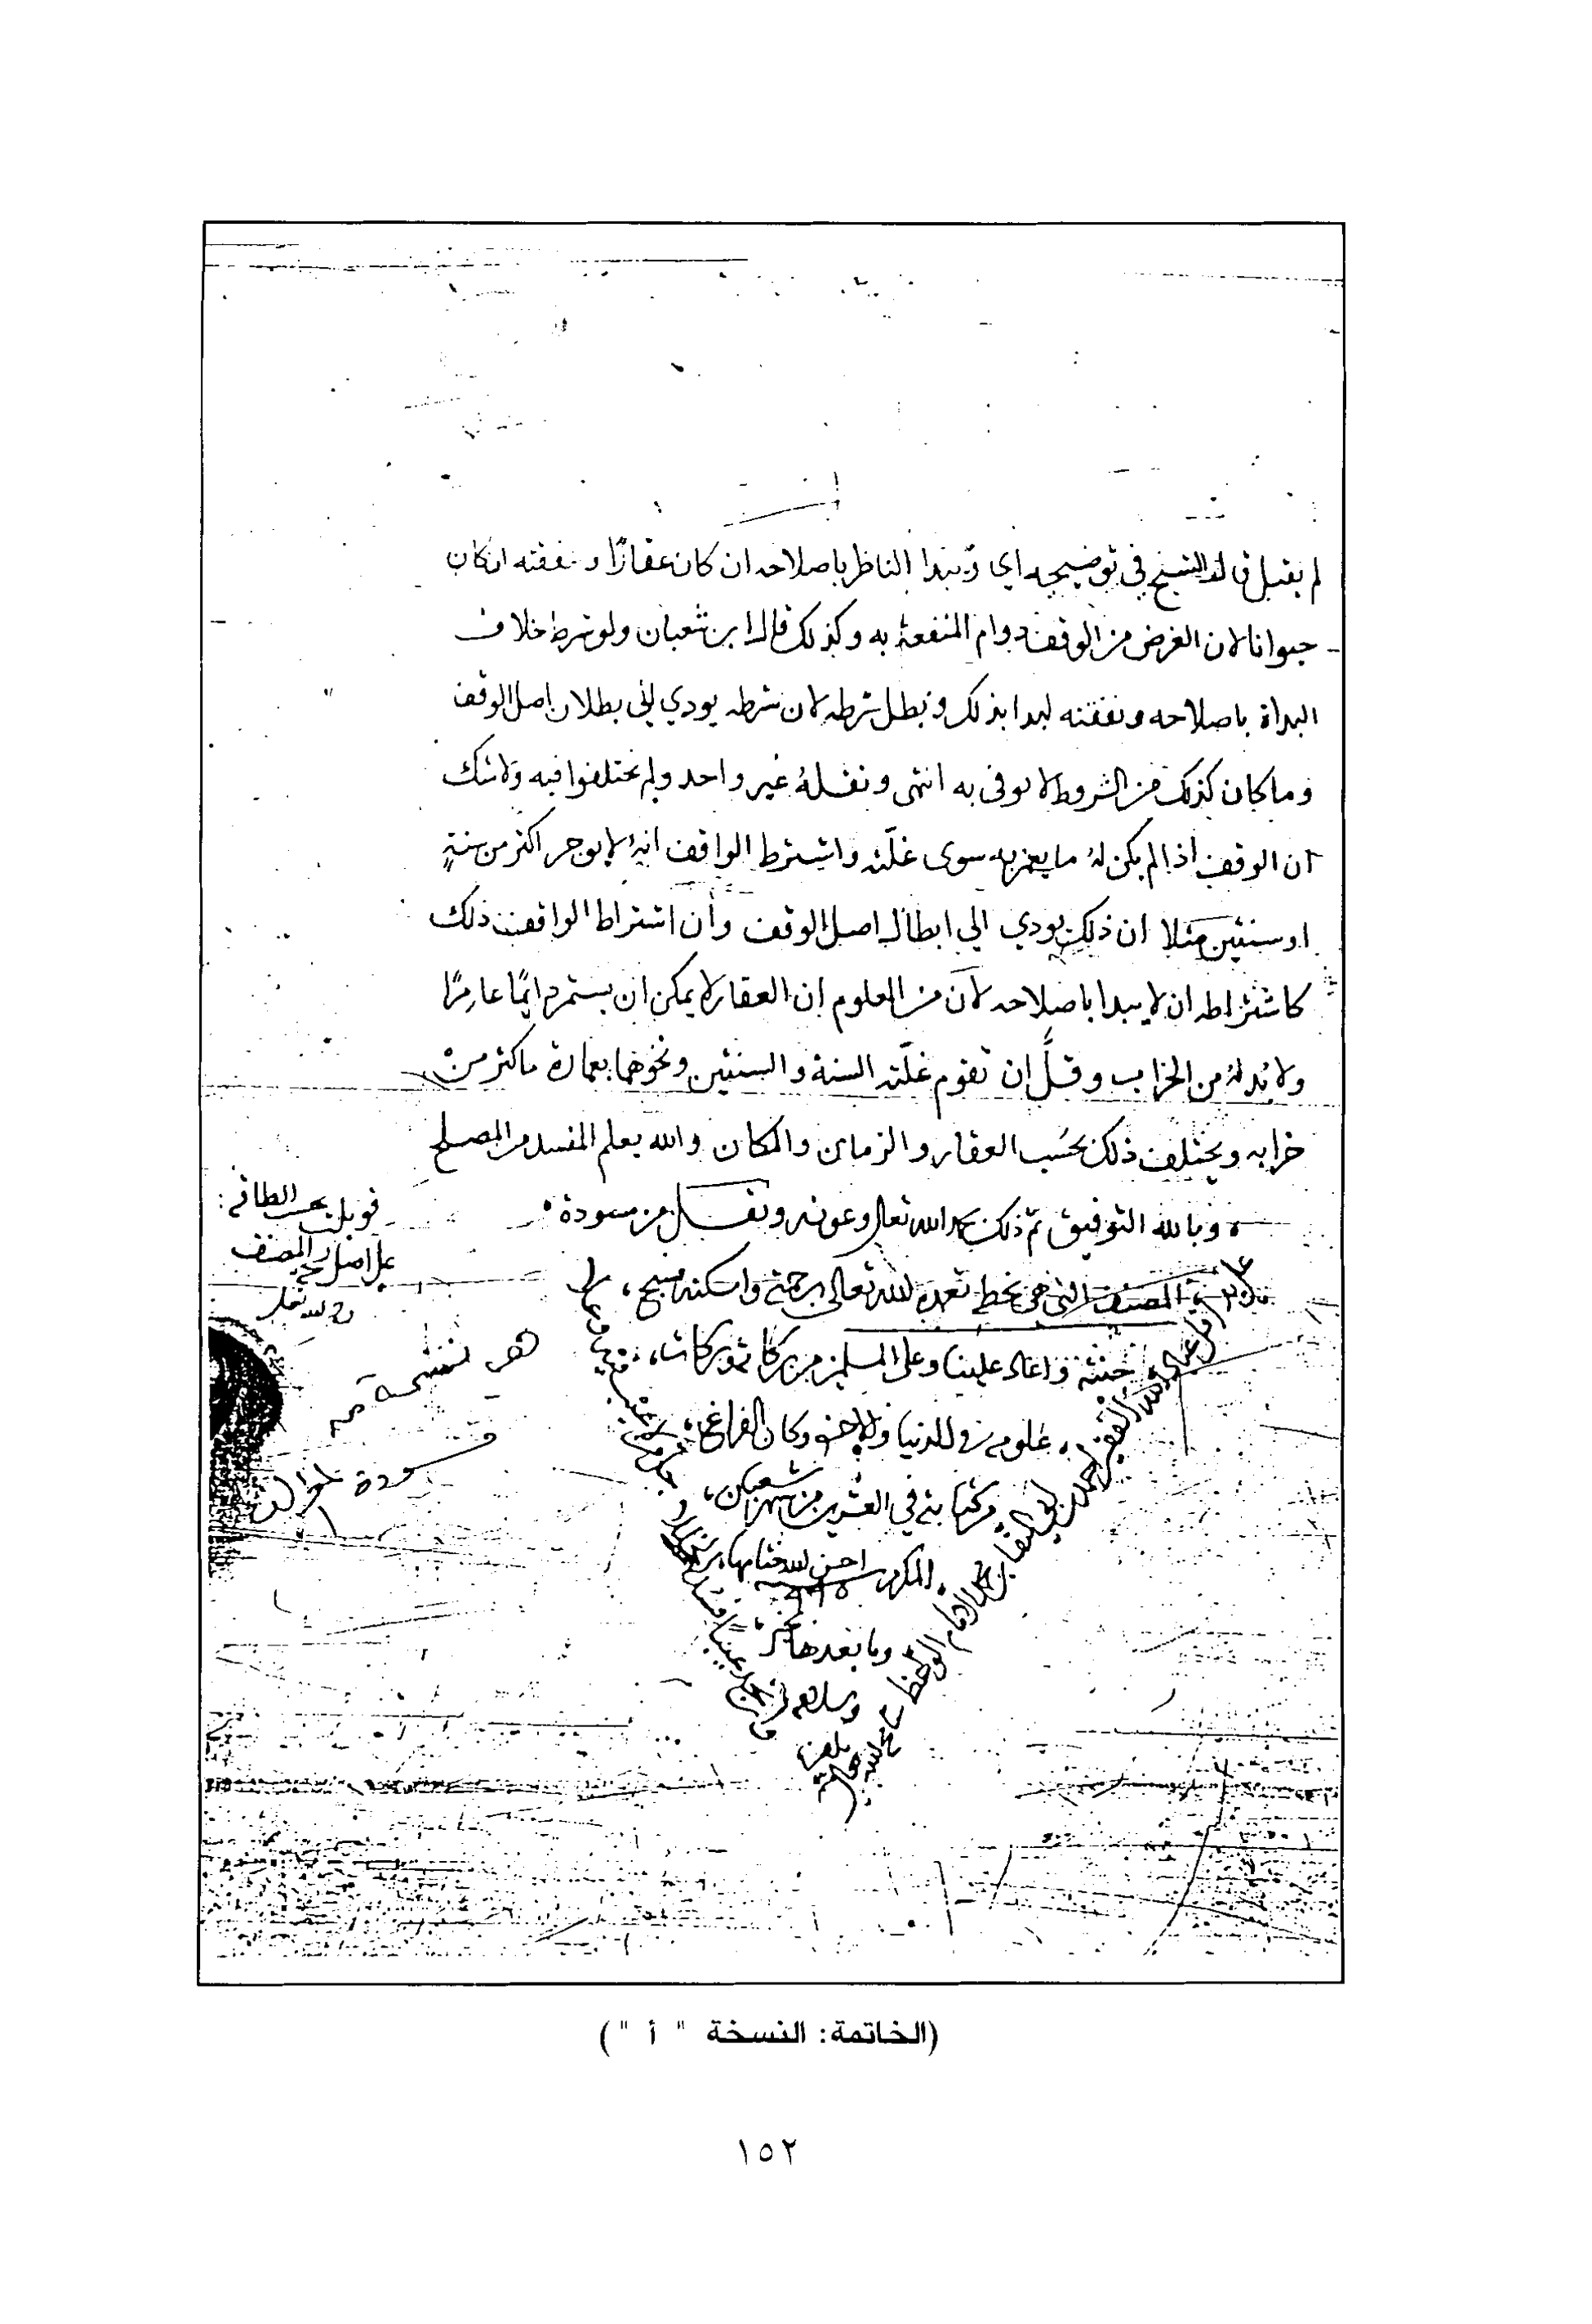 لم يقبل قال الشيخ في توضيحه اي ويبدا الناظر باصلاحه ان كان عقارًا ونفقته ان كان
حيوانا لان الغرض من الوقف دوام المنفعة به وكذلك قال ابن شعبان ولو شرط خلاف
البداة باصلاحه ونفقته لبدا بذلك وبطل شرطه لان شرطه يودي الي بطلان اصل الوقف
وما كان كذلك من الشروط لا يوفى به انتهى ونقله غير واحد ولم يختلفوا فيه ولا شك
ان الوقف اذا لم يكن له ما يعمر به سوى غلّته واشترط الواقف انه لا يوجر اكثر من سنةٍ
او سنتين مثلا ان ذلك يودي الي ابطال اصل الوقف وأن اشتراط الواقف ذلك
كاشتراطه ان لا يبدا باصلاحه لأن من المعلوم ان العقار لا يمكن ان يستمر دايمًا عامرًا
ولا بُد لهُ من الخراب وقلَّ ان تقوم غلّته السنة والسنتين ونحوهما بعمارة ما كثر منْ
خرابه ويختلف ذلك بحَسب العقار والزمان والمكان والله يعلم المفسد من المصلح
وبالله التوفيق تم ذلك بحمد الله تعالى وعونه ونقل من مسودة
المصنف التي هي بخطه تغمده الله تعالى برحمته واسكنه فسيح
جنته واعاد علينا وعلى المسلمين من بركاته وبركات
علومه في الدنيا والاخرة وكان الفراغ
من كتابته في العشرين من شهر شعبان
المكرم احسن الله ختامها
٩١٥
وما بعدها بخير
قوبلت بحسب الطاقة
على اصل المصنف
رحمه الله تعالى
هي نسخة من
مسودة المؤلف
(الخاتمة: النسخة " أ ")
١٥٢